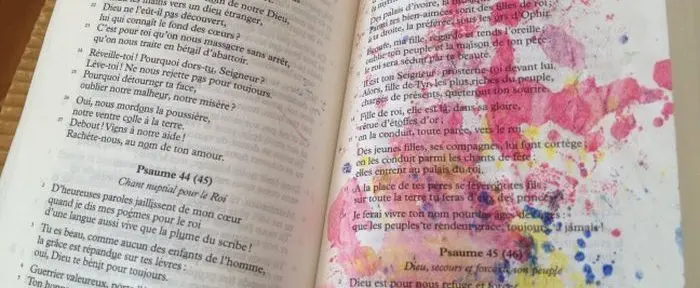 mains vers un dieu étranger,
22 Dieu ne l'eût-il pas découvert,
lui qui connaît le fond des cœurs ?
23 C'est pour toi qu'on nous massacre sans arrêt,
qu'on nous traite en bétail d'abattoir.
24 Réveille-toi ! Pourquoi dors-tu, Seigneur ?
Lève-toi ! Ne nous rejette pas pour toujours.
25 Pourquoi détourner ta face,
oublier notre malheur, notre misère ?
26 Oui, nous mordons la poussière,
notre ventre collé à la terre.
27 Debout ! Viens à notre aide !
Rachète-nous, au nom de ton amour.
Psaume 44 (45)
Chant nuptial pour le Roi
2 D'heureuses paroles jaillissent de mon cœur
quand je dis mes poèmes pour le roi
d'une langue aussi vive que la plume du scribe !
3 Tu es beau, comme aucun des enfants de l'homme,
la grâce est répandue sur tes lèvres :
oui, Dieu te bénit pour toujours.
Guerrier valeureux,
Des palais d'ivoire, la
tes bien-aimées sont des filles de roi ;
à ta droite, la préférée, sous les ors d'Ophir.
Écoute, ma fille, regarde et tends l'oreille ;
oublie ton peuple et la maison de ton père :
le roi sera séduit par ta beauté.
Il est ton Seigneur : prosterne-toi devant lui.
Alors, fille de Tyr, les plus riches du peuple,
chargés de présents, quêteront ton sourire.
Fille de roi, elle est là, dans sa gloire,
vêtue d'étoffes d'or ;
on la conduit, toute parée, vers le roi.
Des jeunes filles, ses compagnes, lui font cortège ;
on les conduit parmi les chants de fête :
elles entrent au palais du roi.
À la place de tes pères se lèveront tes fils ;
sur toute la terre tu feras d'eux des princes.
Je ferai vivre ton nom pour les âges des âges :
que les peuples te rendent grâce, toujours, à jamais !
Psaume 45 (46)
Dieu, secours et force de son peuple
Dieu est pour nous refuge et force